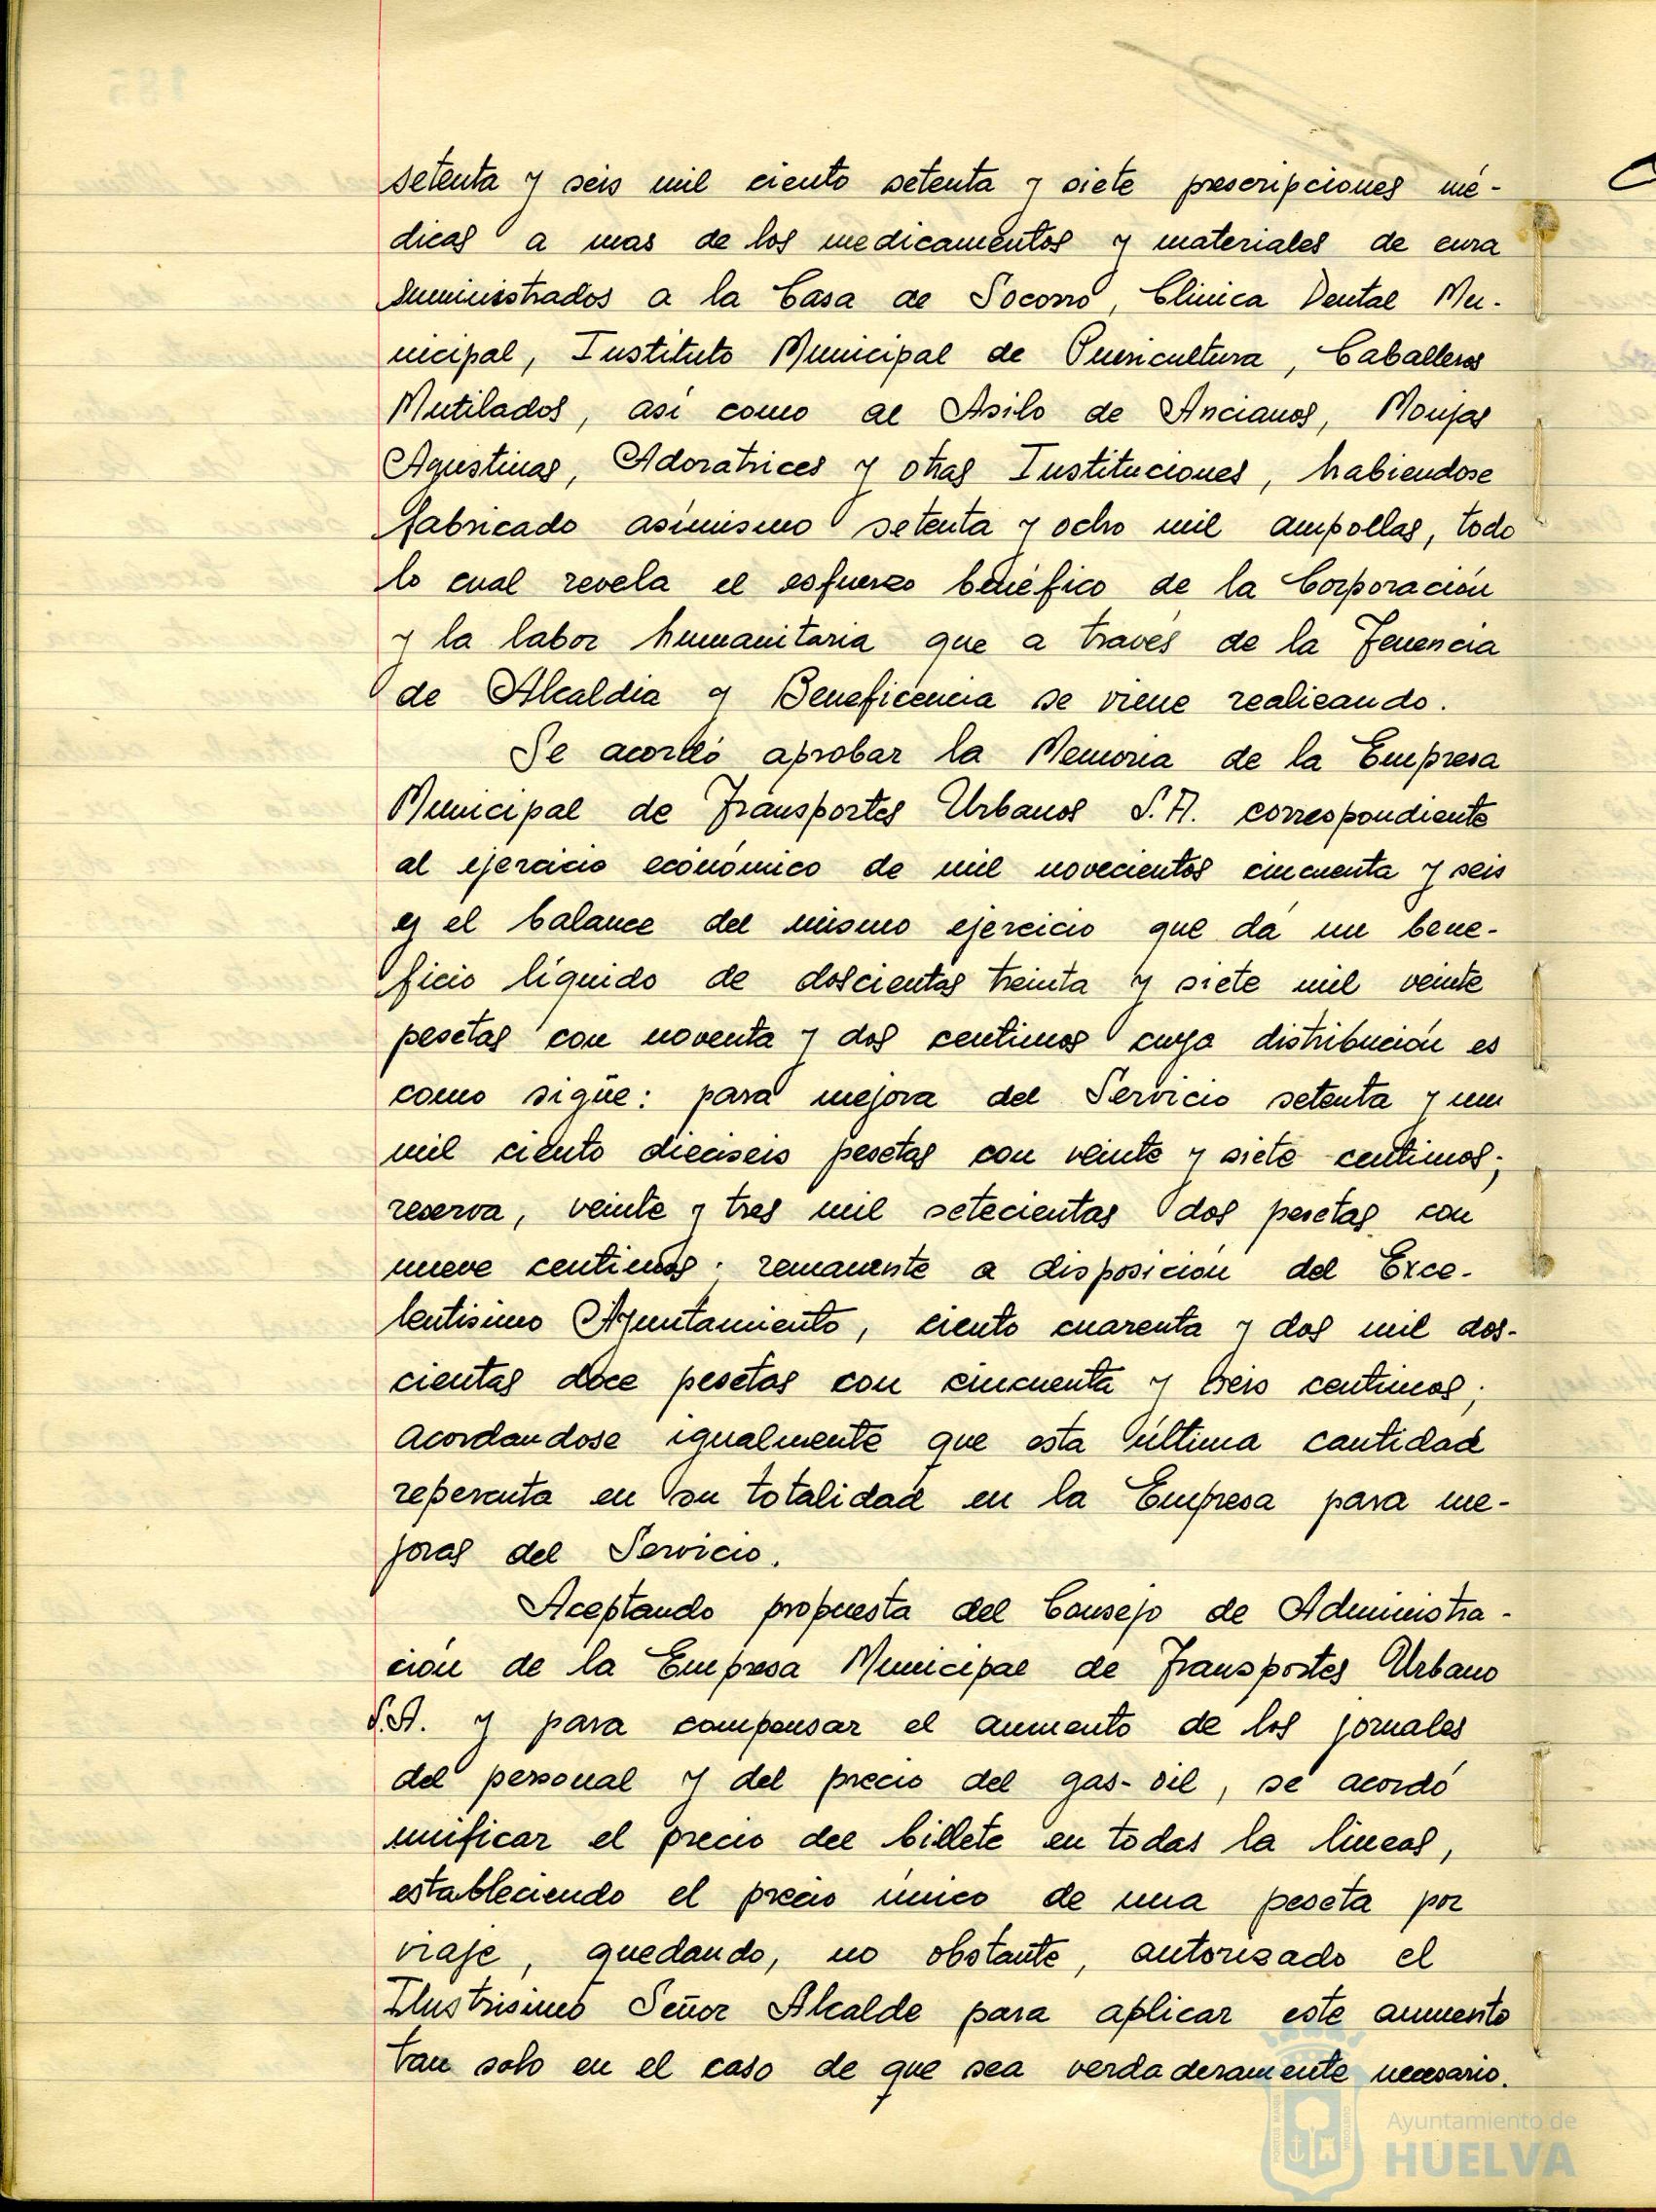 setenta y seis mil ciento setenta y siete prescripciones mé-
dicas a mas de los medicamentos y materiales de cura
suministrados a la Casa de Socorro, Clinica Dental Mu-
nicipal, Instituto Municipal de Puericultura, Caballeros
Mutilados, así como al Asilo de Ancianos, Monjas
Agustinas, Adoratrices y otras Instituciones, habiendose
fabricado asímismo setenta y ocho mil ampollas, todo
lo cual revela el esfuerzo benéfico de la Corporación
y la labor humanitaria que a través de la Tenencia
de Alcaldia y Beneficencia se viene realizando.
Se acordó aprobar la Memoria de la Empresa
Municipal de Transportes Urbanos S.A. correspondiente
al ejercicio económico de mil novecientos cincuenta y seis
y el balance del mismo ejercicio que dá un bene-
ficio líquido de doscientas treinta y siete mil veinte
pesetas con noventa y dos centimos cuya distribución es
como sigüe: para mejora del Servicio setenta y un
mil ciento dieciseis pesetas con veinte y siete centimos;
reserva, veinte y tres mil setecientas dos pesetas con
nueve centimos; remanente a disposición del Exce-
lentisimo Ayuntamiento, ciento cuarenta y dos mil dos-
cientas doce pesetas con cincuenta y seis centimos;
acordandose igualmente que esta última cantidad
repercuta en su totalidad en la Empresa para me-
joras del Servicio.
Aceptando propuesta del Consejo de Administra-
ción de la Empresa Municipal de Transportes Urbano
S.A. y para compensar el aumento de los jornales
del personal y del precio del gas-oil, se acordó
unificar el precio del billete en todas la lineas,
estableciendo el precio único de una peseta por
viaje, quedando, no obstante, autorizado el
Ilustrisimo Señor Alcalde para aplicar este aumento
tan solo en el caso de que sea verdaderamente necesario.
Ayuntamiento de
HUELVA